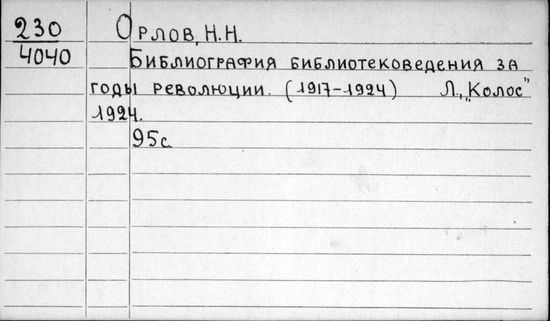 230 Орлов, Н.Н.
4040 Библиография библиотековедения за
годы революции. (1917-1924) Л., "Колос"
1924.
95с.